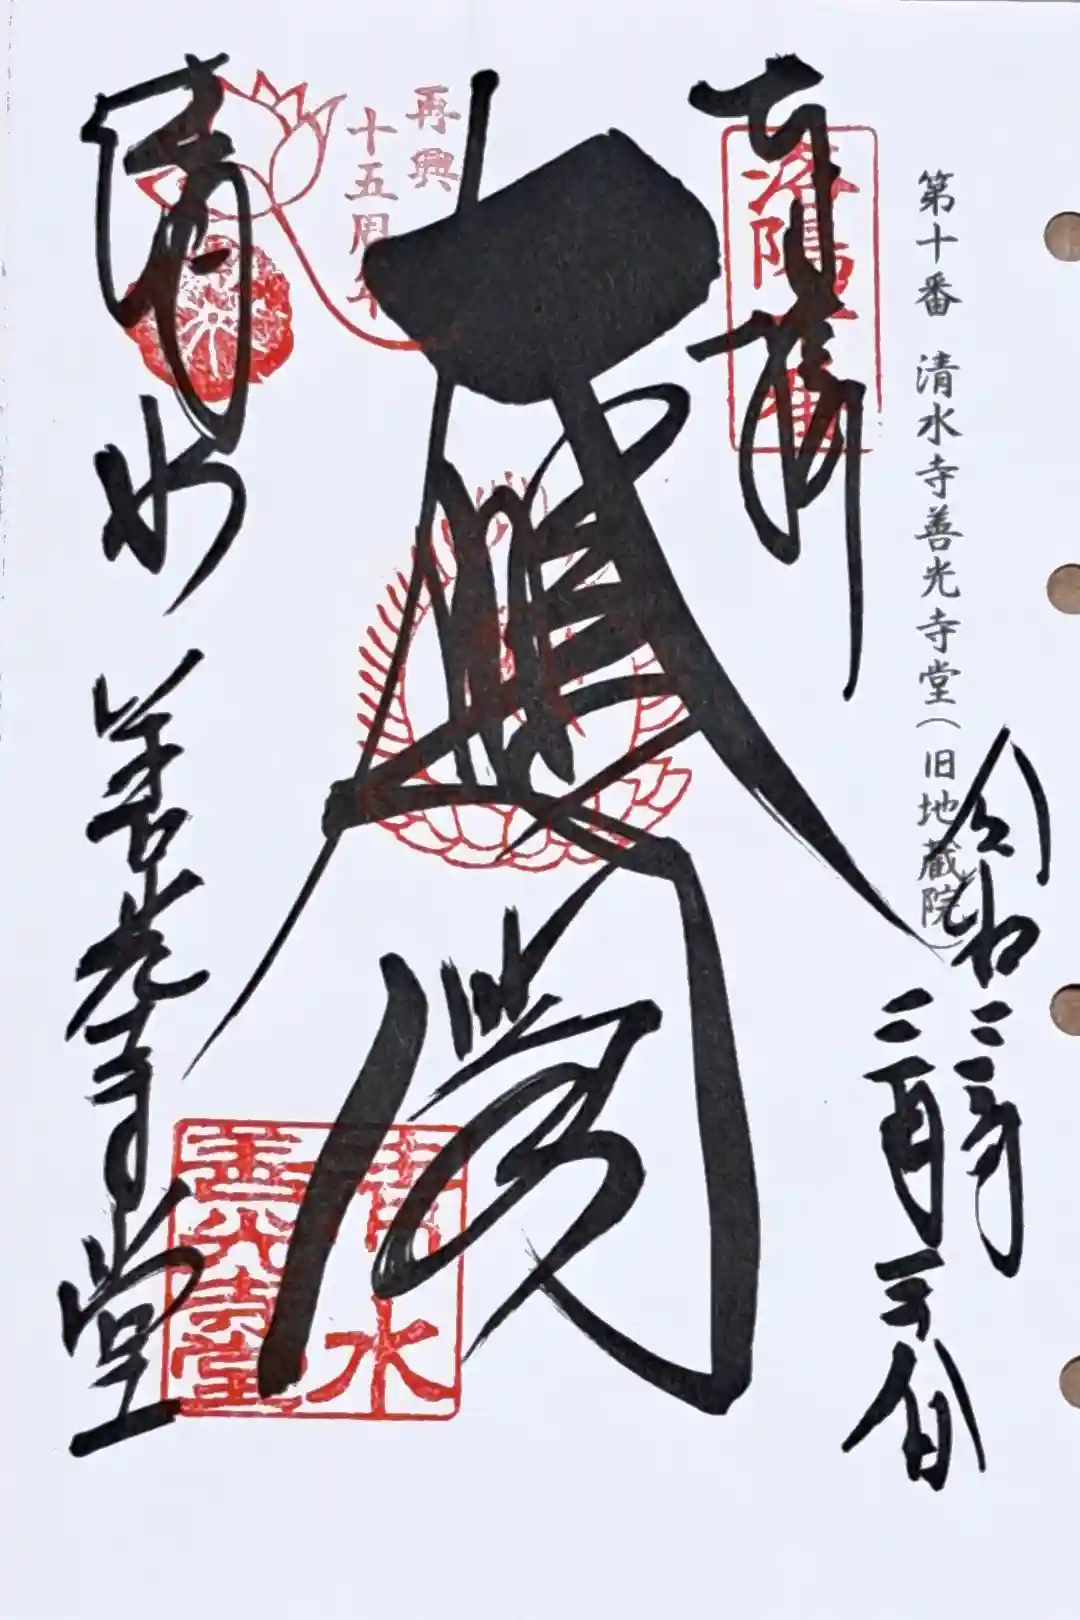 第十番 清水寺善光寺堂(旧地蔵院)
令和二年
二月
奉拝
洛陽
再興
十五周年
大悲閣
清水 善光寺堂
清水
善光寺堂